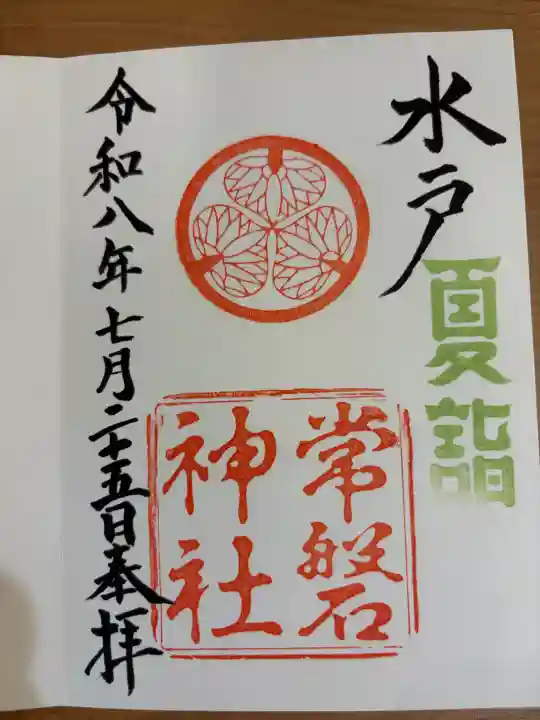 水戸
夏詣
常磐
神社
令和八年七月二十五日奉拝